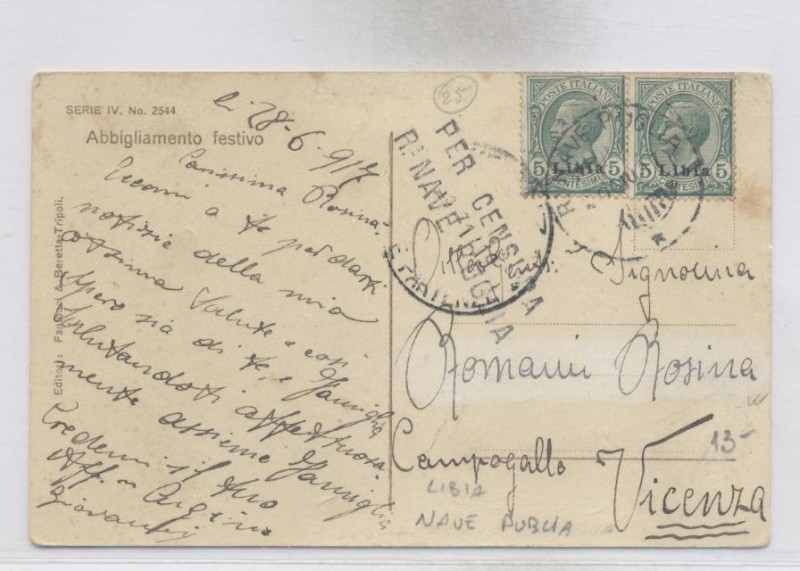 SERIE IV. No. 2544
Abbigliamento festivo
li 28-6-917
Carissima Rosina,
Eccomi a te per darti
notizie della mia
ottima salute e così
spero sia di te, e famiglia
salutandoti affettuosa-
mente assieme famiglia
Credemi il tuo
Aff. Cugino
Giovanni
Editori: Beretta-Tripoli.
25
PER CENSURA
R. NAVE PUGLIA
R. NAVE PUGLIA
POSTE ITALIANE
5 5
CENTESIMI
Libia
POSTE ITALIANE
5 5
CENTESIMI
Libia
Signorina
Romanin Rosina
13-
Campogallo
Vicenza
LIBIA
NAVE PUGLIA